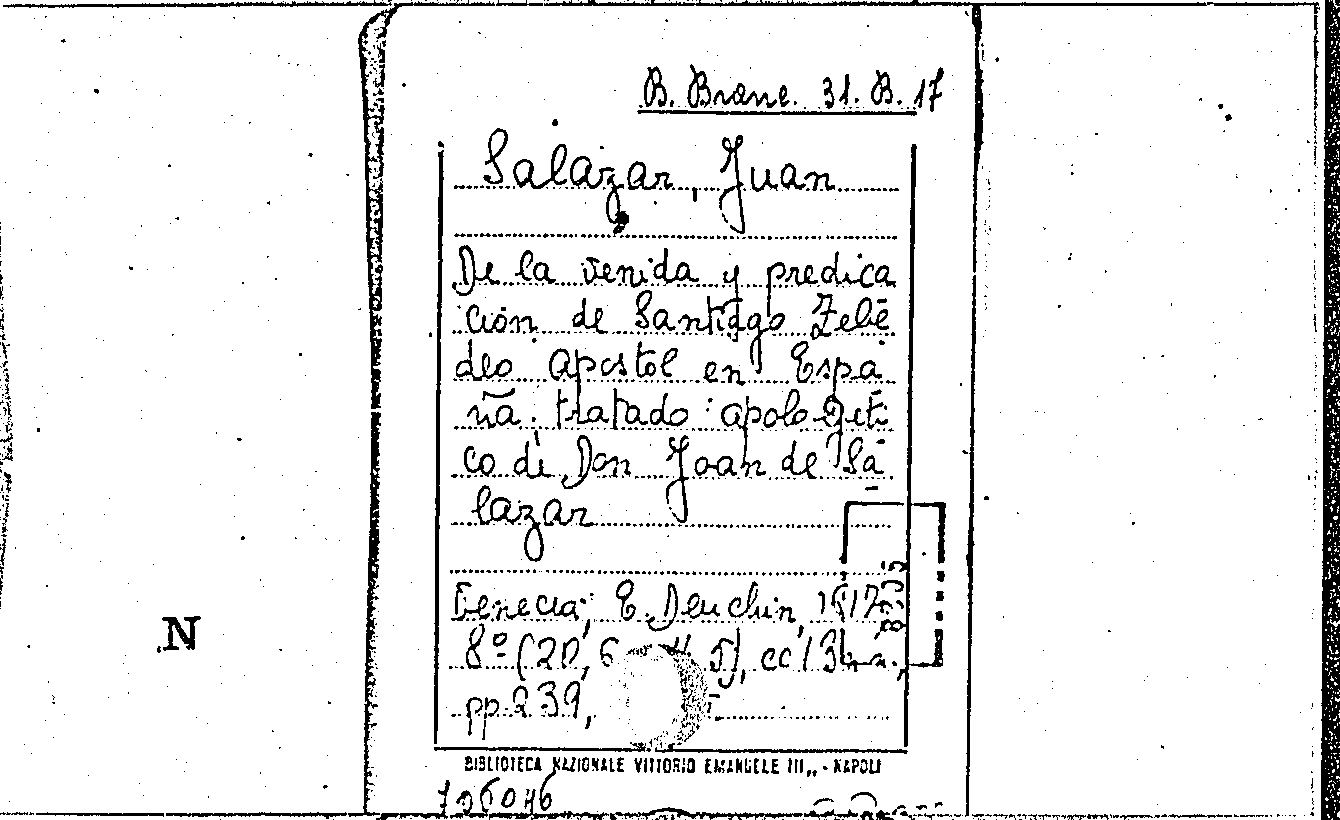 B. Branc. 31. B. 17
Salazar, Juan
De la venida y predica
ción de Santiago Zebe
deo apostol en Espa
ña. tratado apologeti
co di Don Joan de Sa
lazar
Venecia, E. Deuchin, 1617
8º (20, 6 5), cc 13
pp. 239,
BIBLIOTECA NAZIONALE VITTORIO EMANUELE III,, - NAPOLI
N